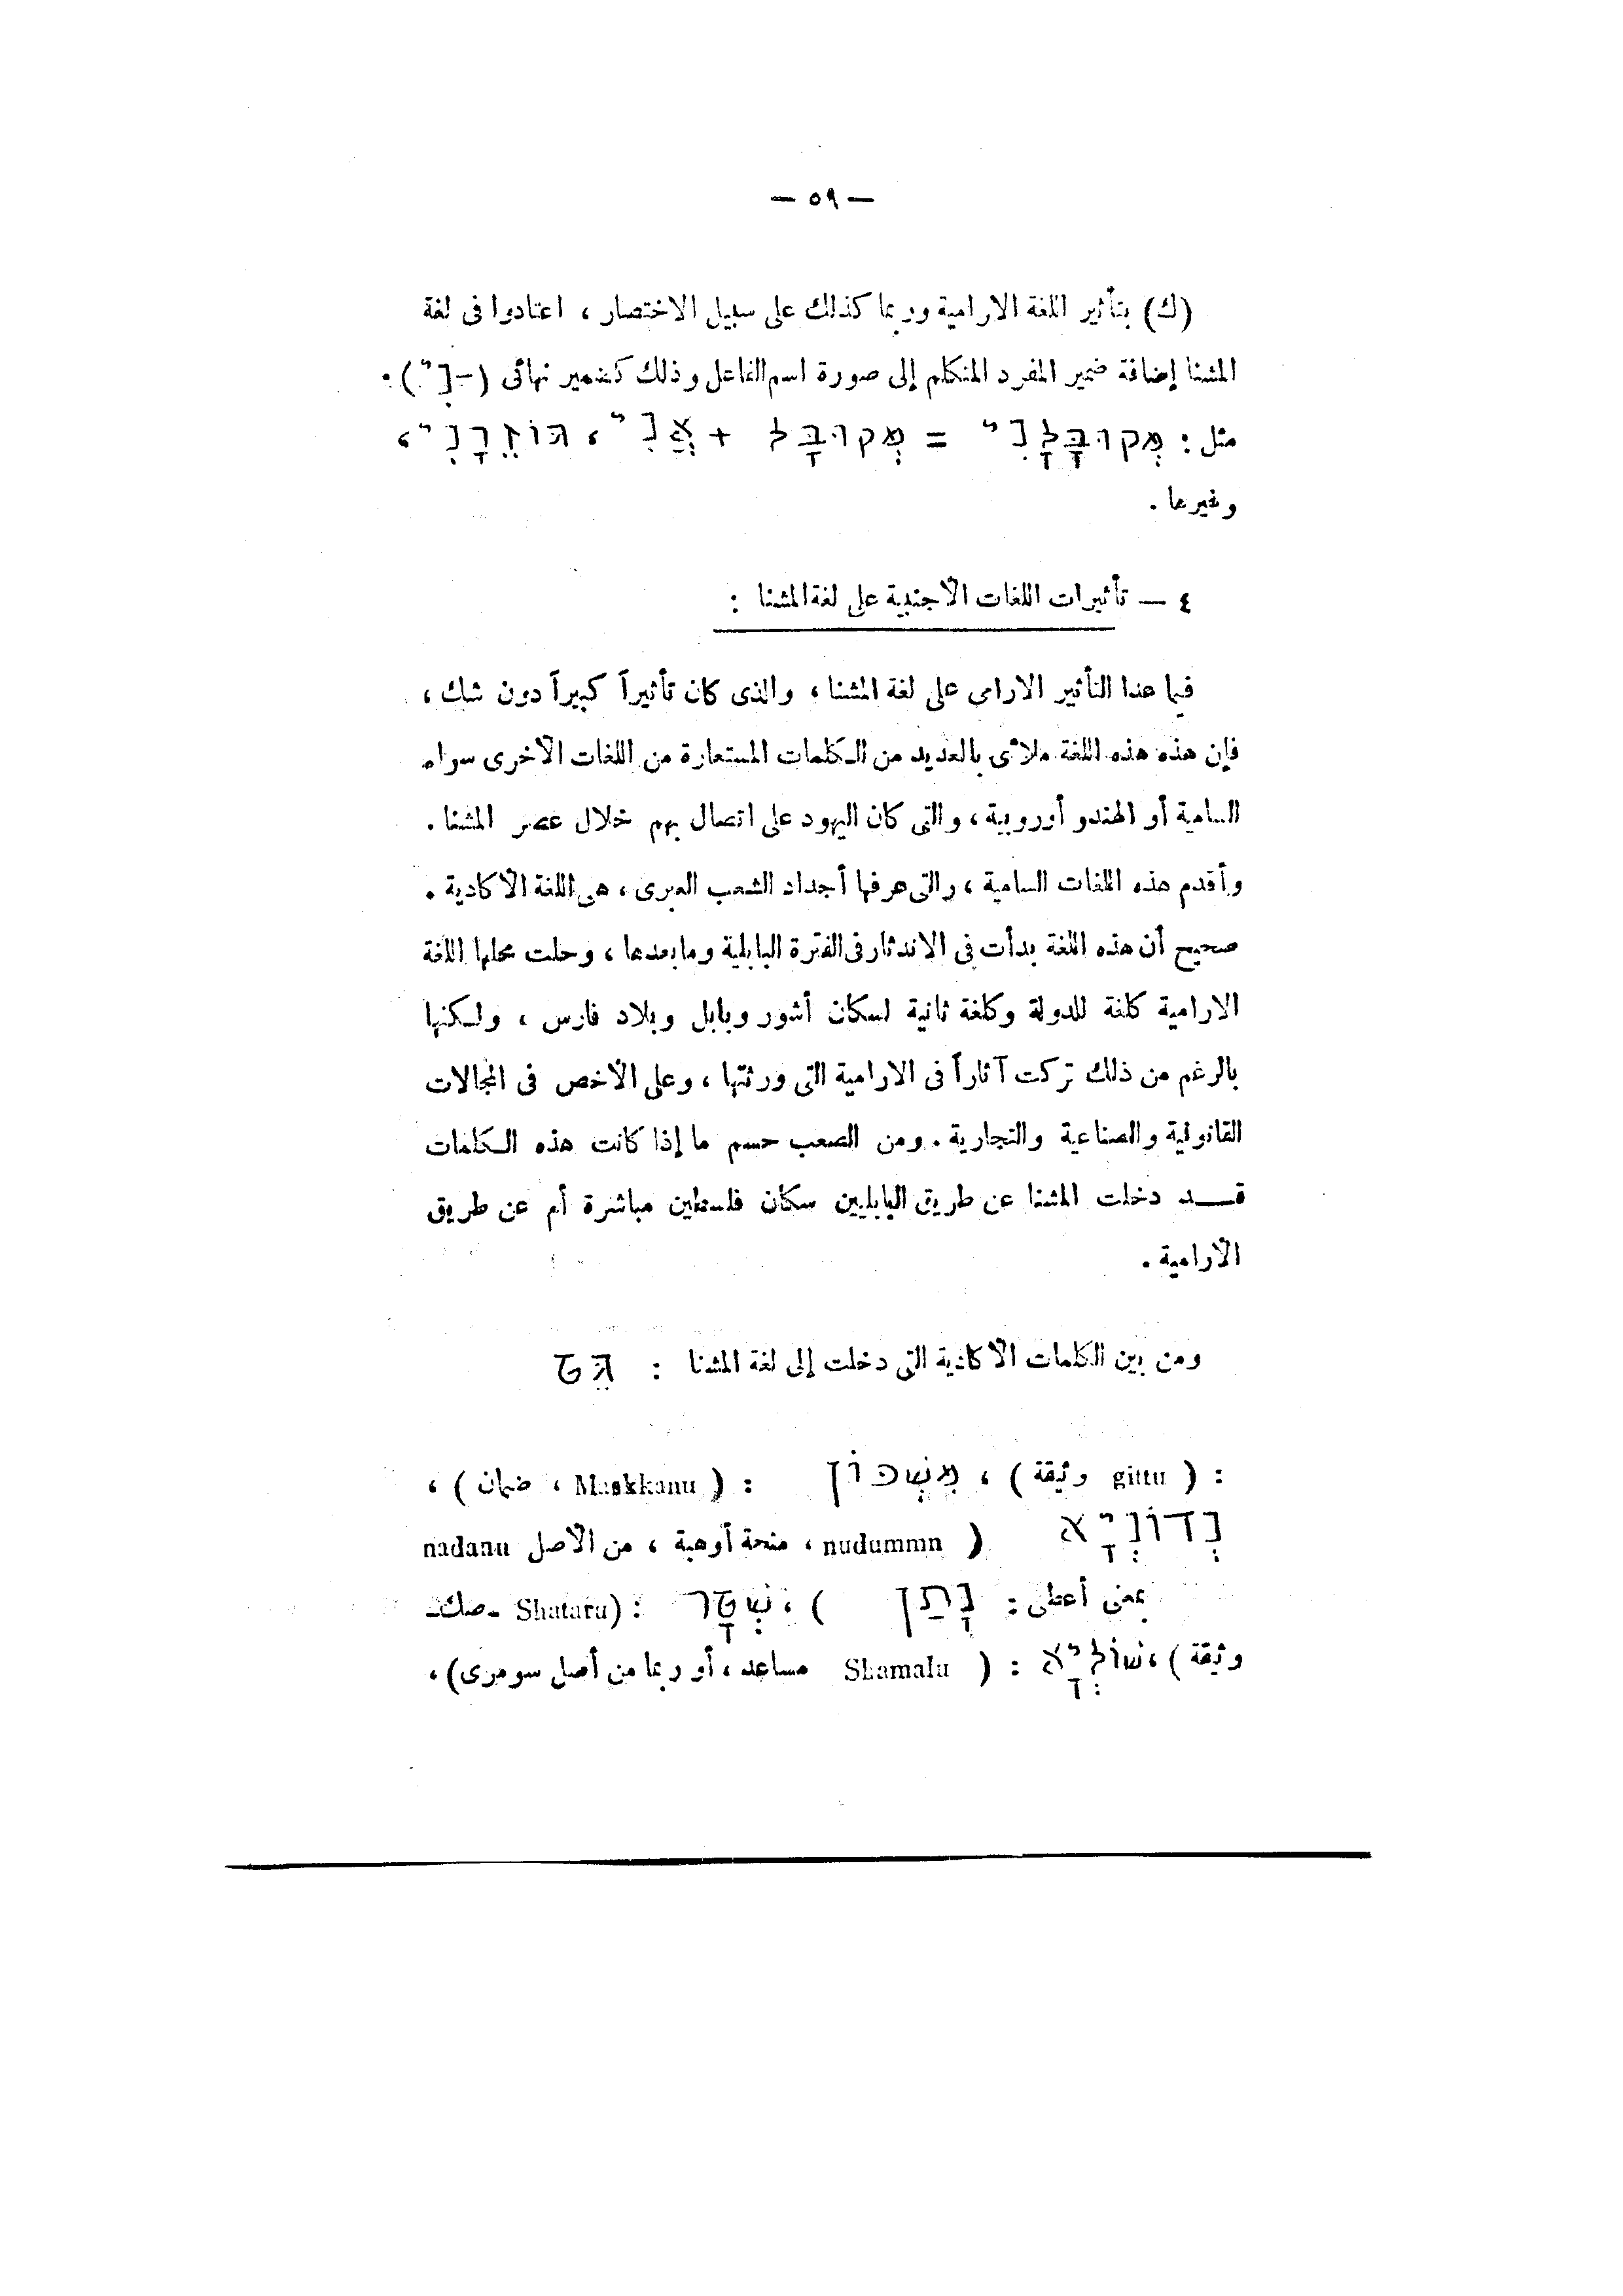 — ٥٩ —
(ك) بتأثير اللغة الارامية وربما كذلك على سبيل الاختصار ، اعتادوا فى لغة
المشنا إضافة ضمير المفرد المتكلم إلى صورة اسم الفاعل وذلك كضمير نهائى (-נִי) .
مثل : מְקוּבָּלָנִי = מְקוּבָּל + אֲנִי ، גּוֹזֵרָנִי ،
وغيرها .
٤ — تأثيرات اللغات الأجنبية على لغة المشنا :
فيما عدا التأثير الارامى على لغة المشنا ، والذى كان تأثيراً كبيراً دون شك ،
فإن هذه هذه اللغة ملأى بالعديد من الكلمات المستعارة من اللغات الأخرى سواء
السامية أو الهندو أوروبية ، والتى كان اليهود على اتصال بهم خلال عصر المشنا .
وأقدم هذه اللغات السامية ، والتى عرفها أجداد الشعب العبرى ، هى اللغة الأكادية .
صحيح أن هذه اللغة بدأت فى الاندثار فى الفترة البابلية وما بعدها ، وحلت محلها اللغة
الارامية كلغة للدولة وكلغة ثانية لسكان أشور وبابل وبلاد فارس ، ولكنها
بالرغم من ذلك تركت آثاراً فى الارامية التى ورثتها ، وعلى الأخص فى المجالات
القانونية والصناعية والتجارية . ومن الصعب حسم ما إذا كانت هذه الكلمات
قد دخلت المشنا عن طريق البابليين سكان فلسطين مباشرة أم عن طريق
الأرامية .
ومن بين الكلمات الأكادية التى دخلت إلى لغة المشنا : גֵּט
: ( gittu وثيقة ) ، מִשְׁכּוֹן : ( Maskkanu ، ضمان ) ،
נְדוֹנְיָא ( nudummn ، منحة أو هبة ، من الأصل nadanu
بمعنى أعطى : נָתַן ) ، שְׁטָר : (Shataru ـ صك ـ
وثيقة ) ، שׁוֹלְיָא : ( Shamalu مساعد ، أو ربما من أصل سومرى) ،